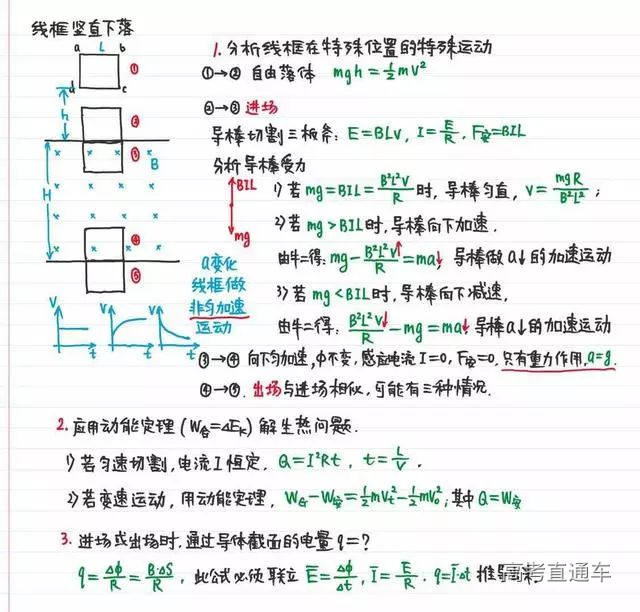 线框竖直下落
a L b
d c
①
h
②
③
B
H
④
⑤
BIL
mg
a变化
线框做
非匀加速
运动
V t V t V t
1. 分析线框在特殊位置的特殊运动
①→② 自由落体 mgh=½mV²
②→③ 进场
导棒切割三板斧: E=BLV, I=E/R, F安=BIL
分析导棒受力
1) 若mg=BIL=B²L²V/R 时, 导棒匀直, V=mgR/B²L² ;
2) 若mg>BIL时, 导棒向下加速.
由牛二得: mg-B²L²V↑/R=ma↓, 导棒做a↓的加速运动
3) 若mg<BIL时, 导棒向下减速,
由牛二得: B²L²V↓/R-mg=ma↓, 导棒a↓的加速运动
③→④ 向下匀加速, φ不变, 感应电流I=0, F安=0, 只有重力作用, a=g.
④→⑤. 出场与进场相似, 可能有三种情况.
2. 应用动能定理 (W合=ΔEk) 解生热问题.
1) 若匀速切割, 电流I恒定, Q=I²Rt, t=L/V .
2) 若变速运动, 用动能定理, WG-W安=½mVt²-½mV0²; 其中Q=W安
3. 进场或出场时, 通过导体截面的电量q=?
q=Δφ/R=B·ΔS/R, 此公式必须联立 E̅=Δφ/Δt, I̅=E̅/R. q=I̅·Δt 推导出来.
高考直通车